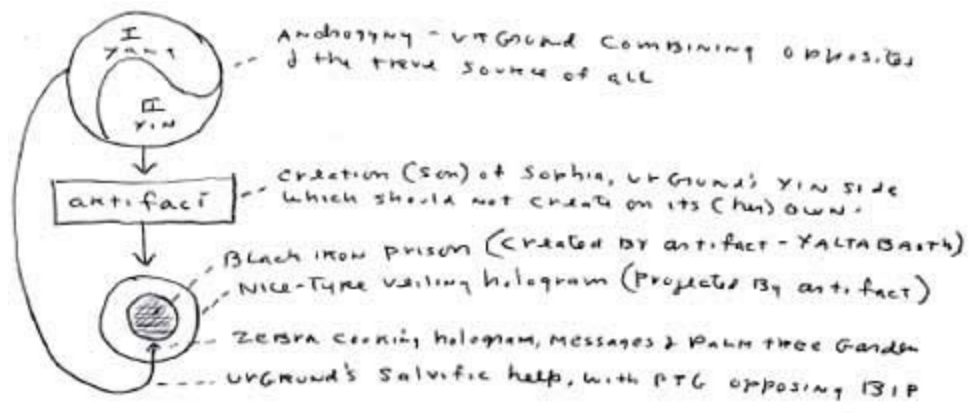 I
YANG
II
YIN
Androgyny - UrGrund combining opposites
& the true source of all
artifact
creation (son) of Sophia, UrGrund's YIN side
which should not create on its (her) own.
Black iron prison (created by artifact - YALTABAOTH)
Nice-Type veiling hologram (projected By artifact)
Zebra cooking hologram, messages & Palm Tree Garden
UrGrund's Salvific help, with PTG opposing BIP